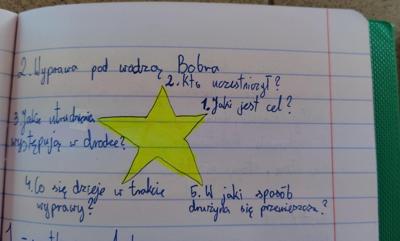 2. Wyprawa pod wodzą Bobra
2. Kto uczestniczył?
1. Jaki jest cel?
3. Jakie utrudnienia
występują w drodze?
4. Co się dzieje w trakcie
wyprawy?
5. W jaki sposób
drużyna się przemieszcza?
1